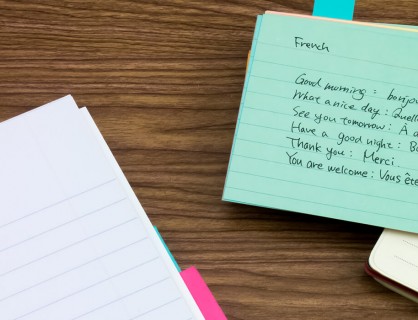 French
Good morning : bonjo
What a nice day : Quell
See you tomorrow : À d
Have a good night : Bo
Thank you : Merci
You are welcome : Vous ête